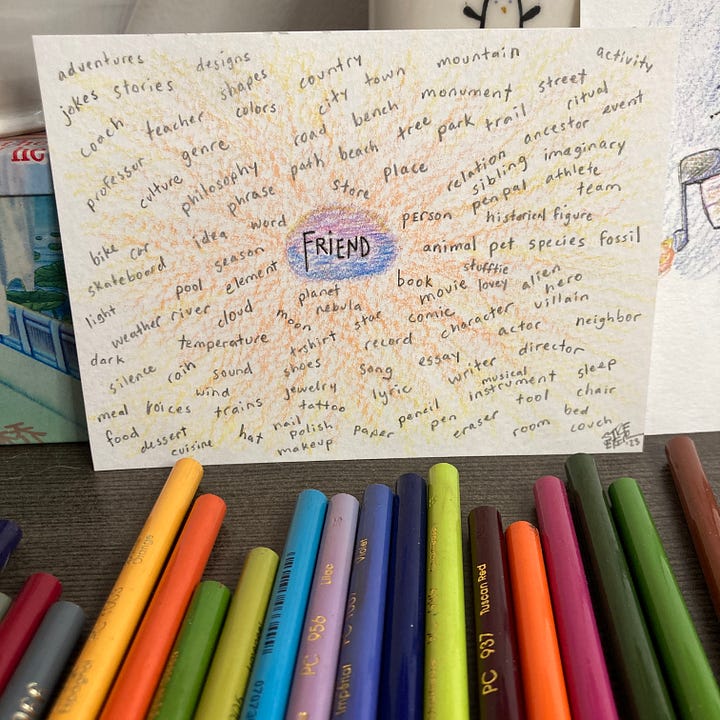 adventures designs country mountain activity
jokes stories shapes city town street
coach teacher colors road bench monument ritual
professor genre path beach tree park trail ancestor event
culture philosophy store place relation sibling imaginary
phrase person pen pal athlete team
bike car idea word FRIEND historical figure
skateboard pool season animal pet species fossil
light weather river element planet book stufftie
cloud moon nebula movie lovey alien hero
dark temperature t-shirt star comic character villain
silence rain sound shoes record actor neighbor
wind jewelry song essay writer director
meal voices trains tattoo lyric musical instrument sleep
food dessert hat nail polish pencil pen tool chair
cuisine makeup paper eraser room bed couch
Orange
PC 956 Lilac
Violet
Imperial
PC 937 Tuscan Red